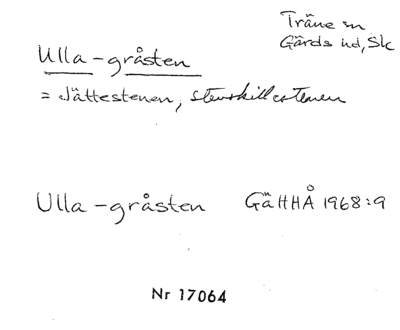 Träne sn
Gärds hd, Sk
Ulla-gråsten
= Jättestenen,
Ulla-gråsten GäHHÅ 1968:9
Nr 17064